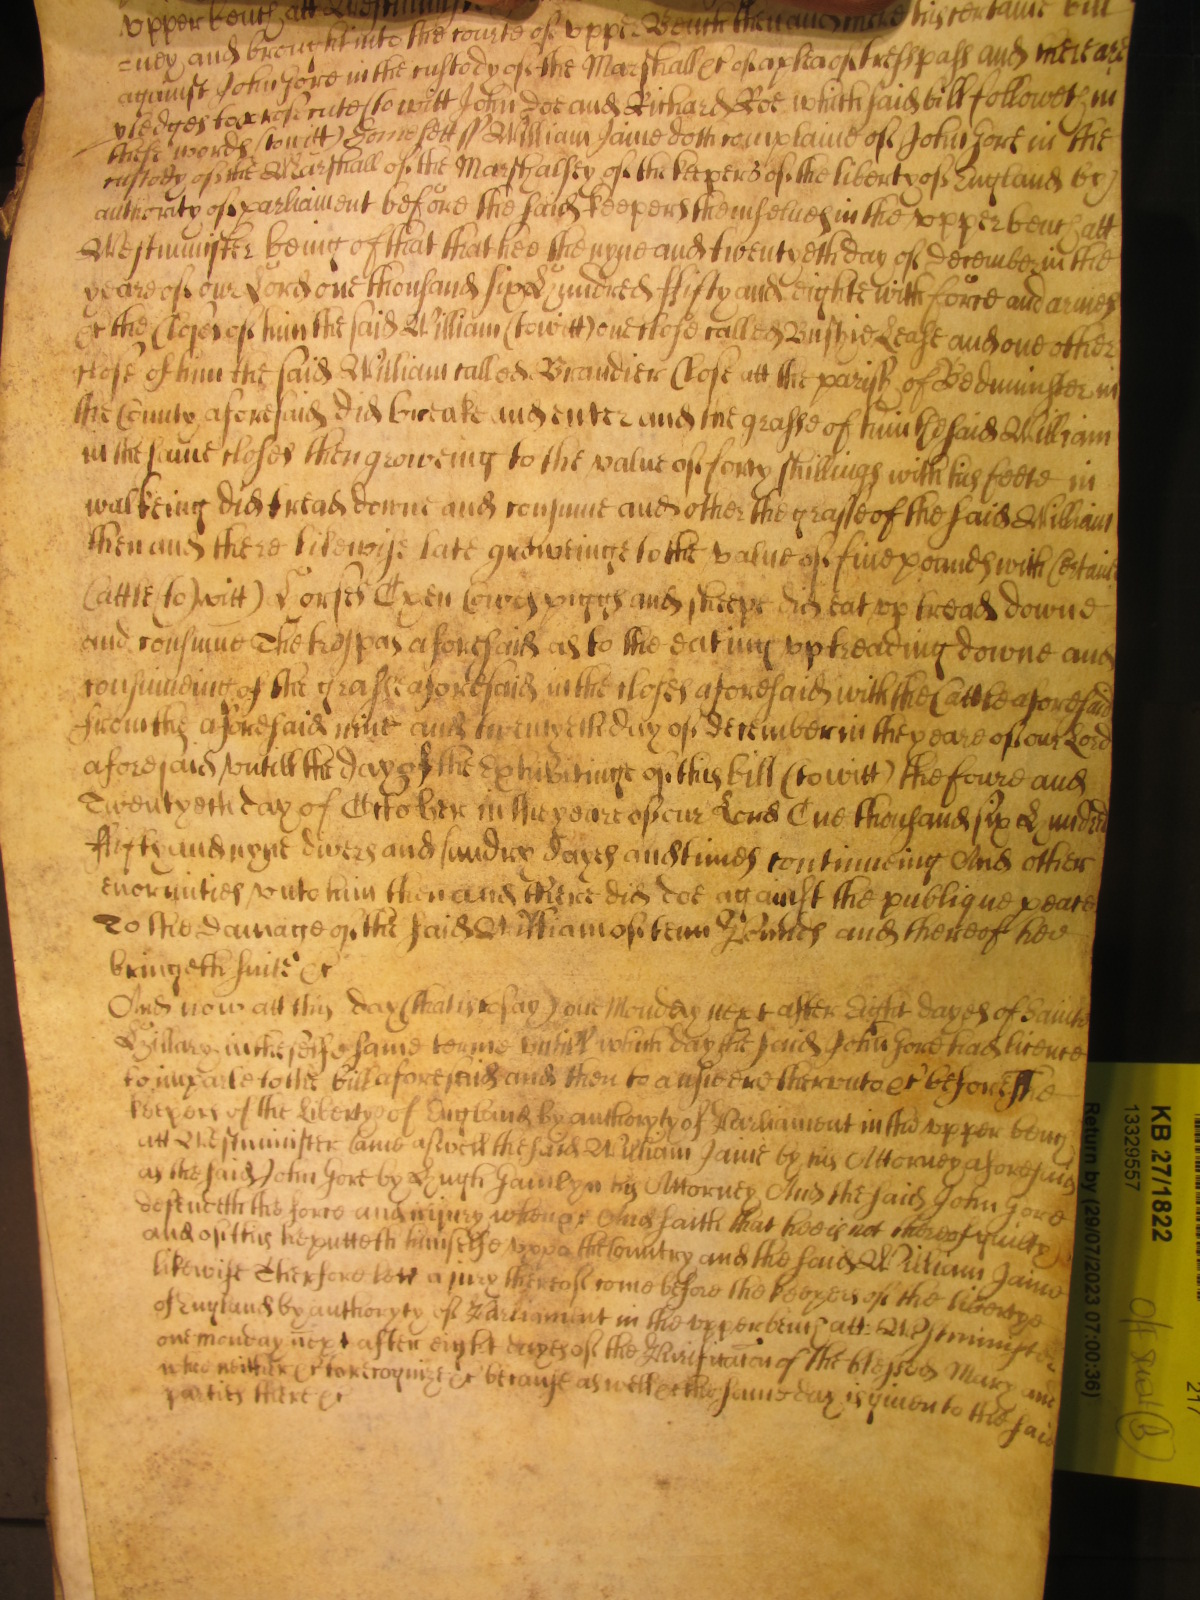 upper bench att Westminster
=ney and brought into the courte of upper Bench then and there his certaine bill
against John Gore in the custody of the Marshall &c of a plea of tresspass and there are
pledges to prosecute (to witt) John Doe and Richard Roe which said bill followeth in
these words (to witt) Somersett ss William Jaine doth complaine of John Gore in the
custody of the Marshall of the Marshalsey of the keepers of the liberty of England by
authority of parliament before the said keepers themselves in the upper bench att
Westminister being of that that hee the nyne and twentyeth day of December in the
yeare of our Lord one thousand six Hundred ffifty and eighte with force and armes
&c the Closes of him the said William (to witt) one close called Bushie Lease and one other
close of him the said William called Brandier Close att the parish of Bedminster in
the County aforesaid did breake and enter and the grasse of him the said William
in the same closes then groweing to the value of forty shillings with his feete in
walkeing did tread downe and consume and other the grasse of the said William
then and there likewise late groweinge to the value of five pounds with Certaine
Cattle (to witt) Horses Oxen Cowes piggs and sheepe did eat up tread downe
and consume The trespas aforesaid as to the eating up treading downe and
consumeing of the grasse aforesaid in the closes aforesaid with the Cattle aforesaid
from the aforesaid nine and twentyeth day of December in the yeare of our Lord
aforesaid untill the day of the exhibitinge of this bill (to witt) the foure and
Twentyeth day of October in the yeare of our Lord One thousand six Hundred
ffifty and nyne divers and sundry dayes and times continueing And other
enormities unto him then and there did doe against the publique peace
To the damage of the said William of tenn Pounds and thereof hee
bringeth suite &c
And now att this day (that is to say) one Monday next after Eight dayes of Sainte
Hillary in the selfe same terme untill which day the said John Gore had licence
to imparle to the bill aforesaid and then to answere thereunto &c before The
keepers of the Liberty of England by authoryty of Parliament in the upper bench
att Westminister Came aswell the said William Jaine by his Attorney aforesaid
as the said John Gore by Hugh Hamlyn his Attorney And the said John Gore
defendeth the force and injury when &c And saith that hee is not thereof guilty
and of this he putteth himselfe uppon the Country and the said William Jaine
likewise Therefore lett a jury thereof come before the keepers of the libertye
of England by authoryty of Parliament in the upper bench att Westminister
one monday next after eight dayes of the Purificacon of the blessed Mary and
who neither &c to recognize &c because aswell &c the same day is given to the said
parties there &c
KB 27/1822
13329557
Return by (29/07/2023 07:00:36)
217